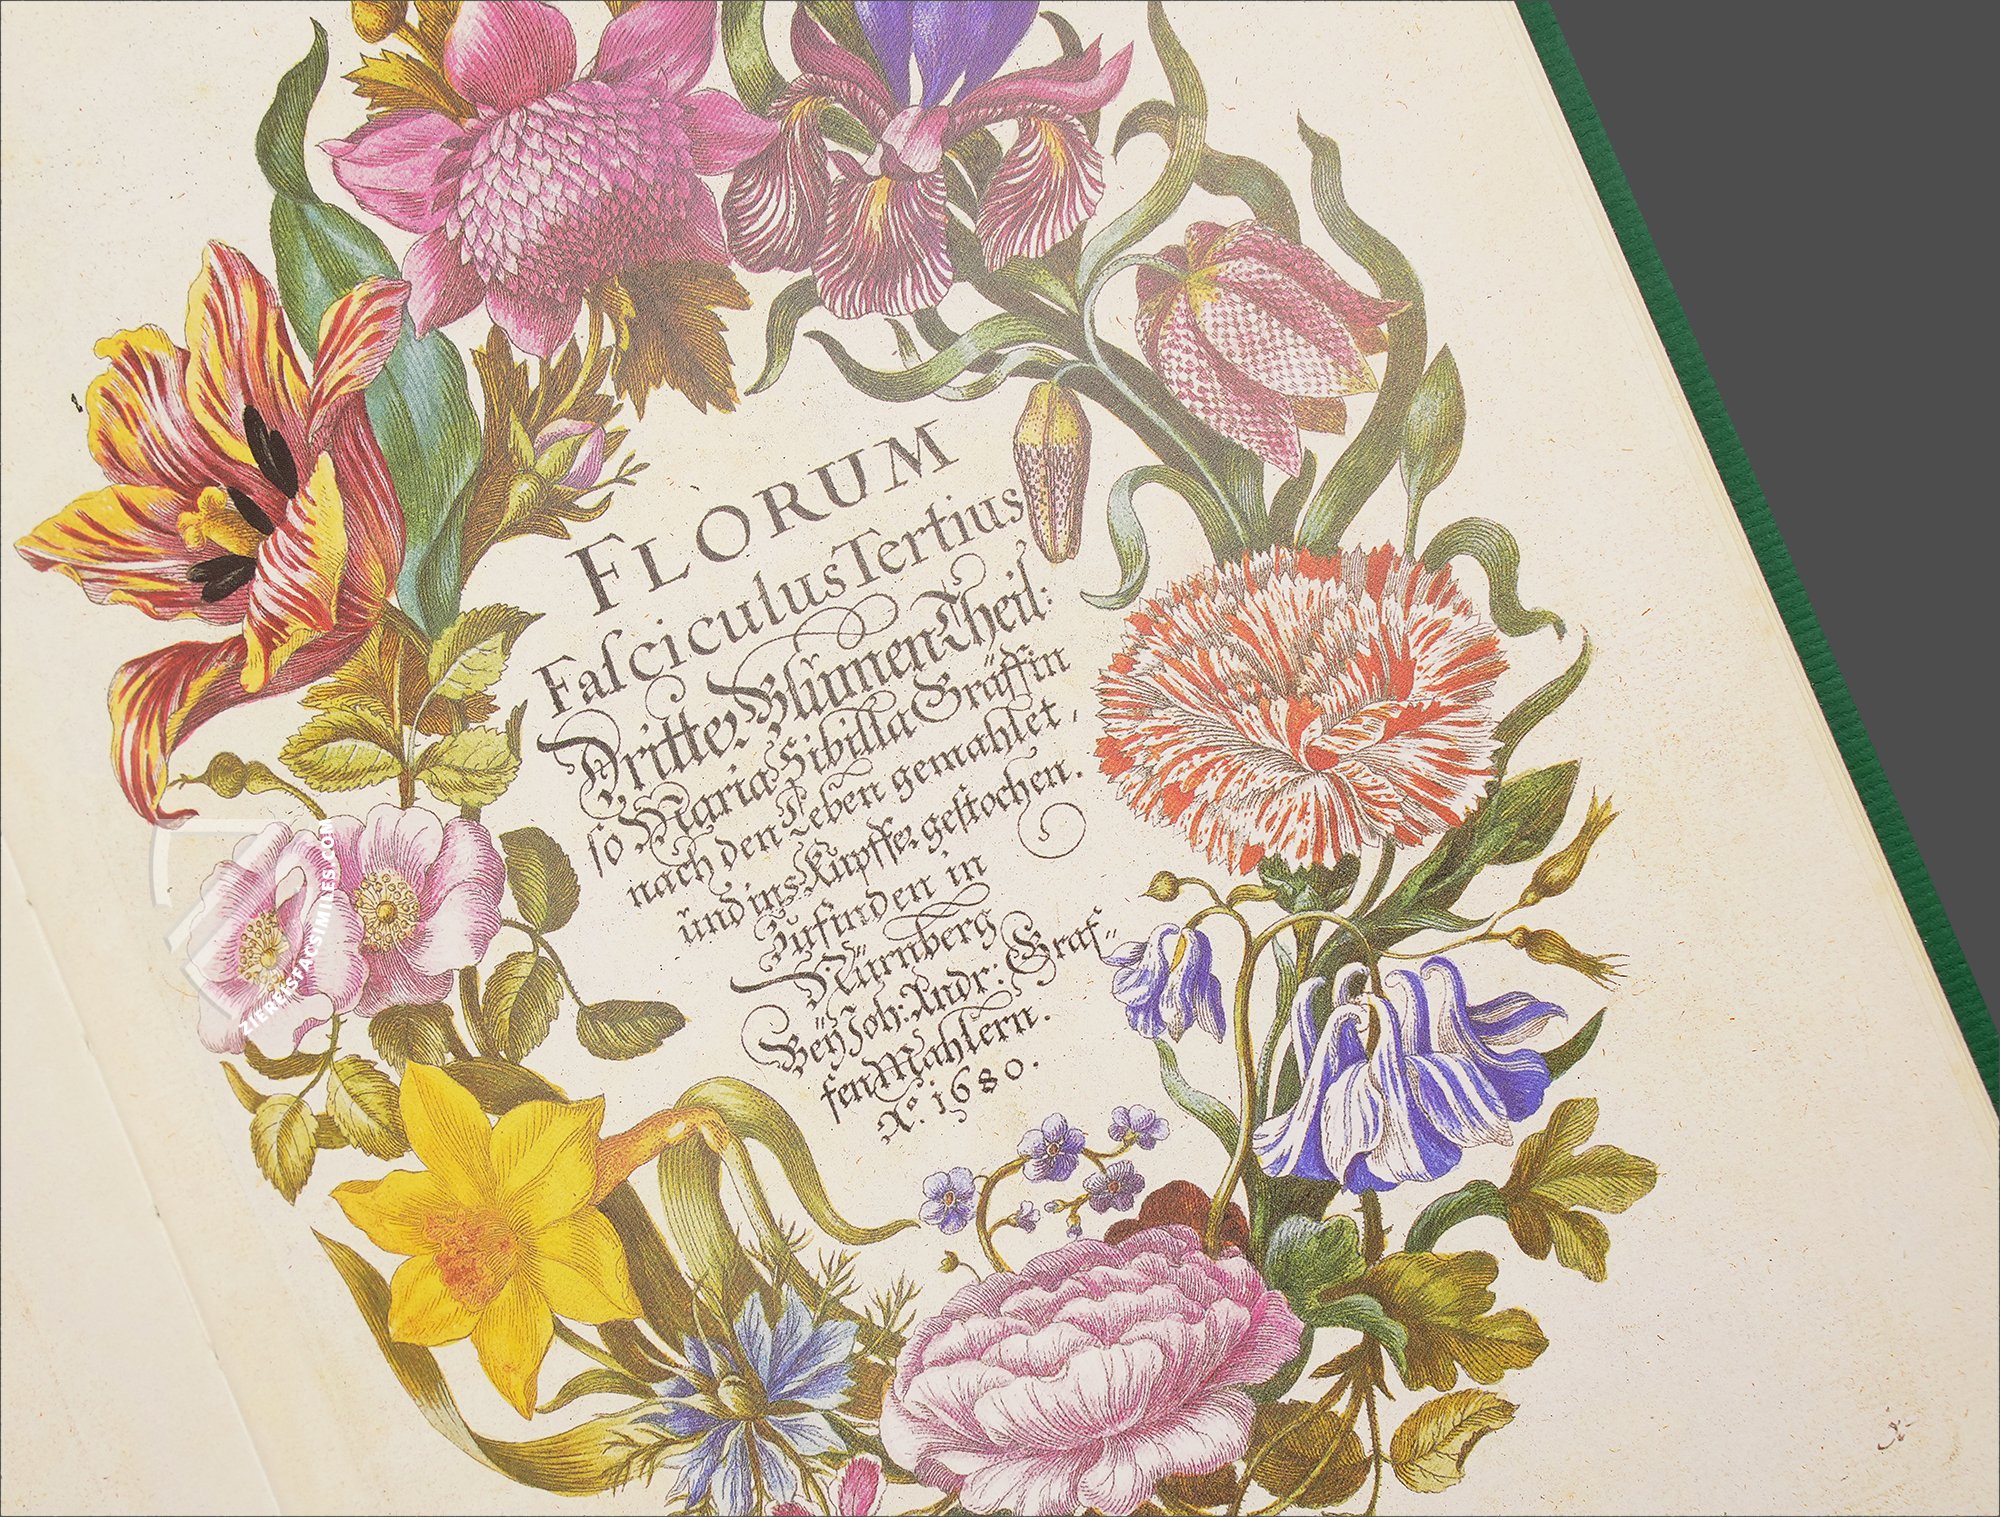 FLORUM
Faſciculus Tertius
Dritter Blŭmen Theil:
ſo Maria Sibilla Gräffin
nach den Leben gemahlet,
ŭnd ins Kŭpffer geſtochen.
Zufinden in
Nürnberg
Beÿ Joh: Andr: Graf-
fen Mahlern.
Aº. 1680.
ZIEREISFACSIMILES.COM